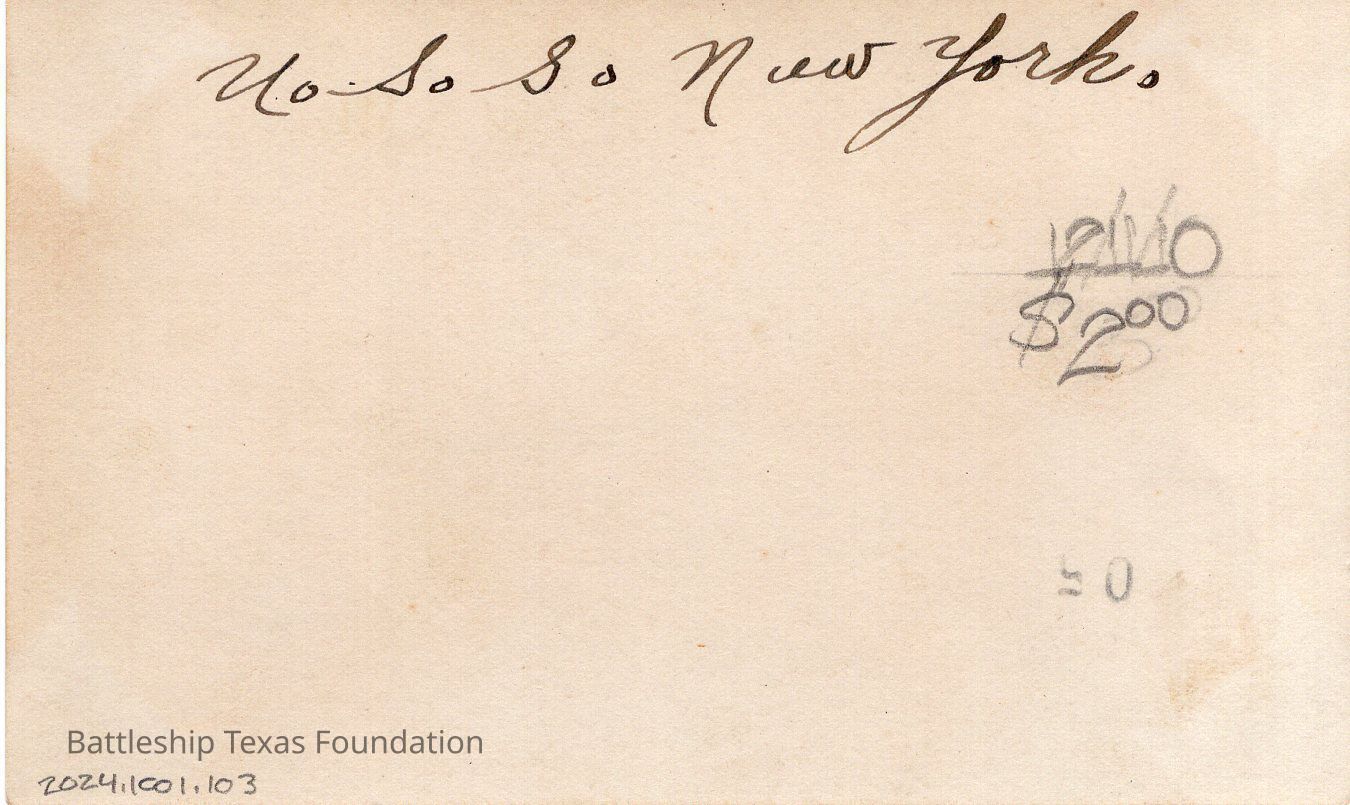 U. S. S. New York.
$2.00
Battleship Texas Foundation
2024.1001.103